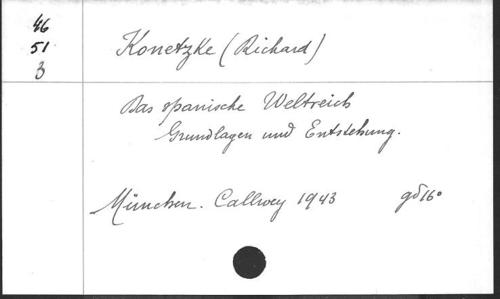 46
51
3
Konetzke (Richard)
Das spanische Weltreich
Grundlagen und Entstehung.
München. Callwey 1943 gd 16°